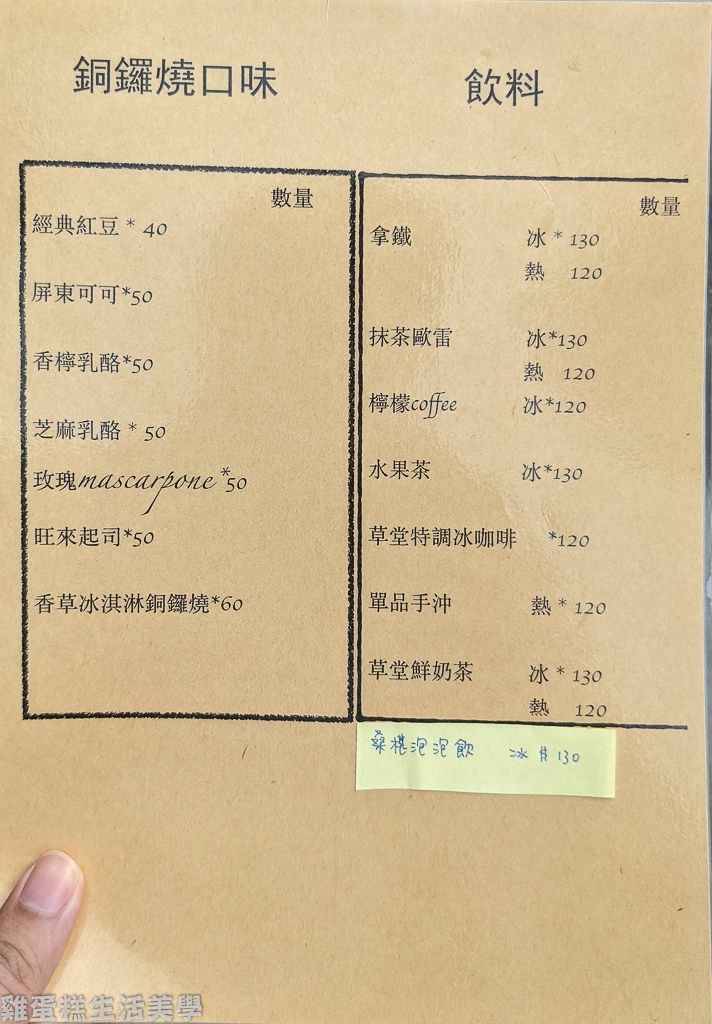 銅鑼燒口味
數量
經典紅豆 * 40
屏東可可*50
香檸乳酪*50
芝麻乳酪 * 50
玫瑰mascarpone *50
旺來起司*50
香草冰淇淋銅鑼燒*60
飲料
數量
拿鐵 冰 * 130
熱 120
抹茶歐雷 冰*130
熱 120
檸檬coffee 冰*120
水果茶 冰*130
草堂特調冰咖啡 *120
單品手沖 熱 * 120
草堂鮮奶茶 冰 * 130
熱 120
桑椹泡泡飲 冰 # 130
雞蛋糕生活美學